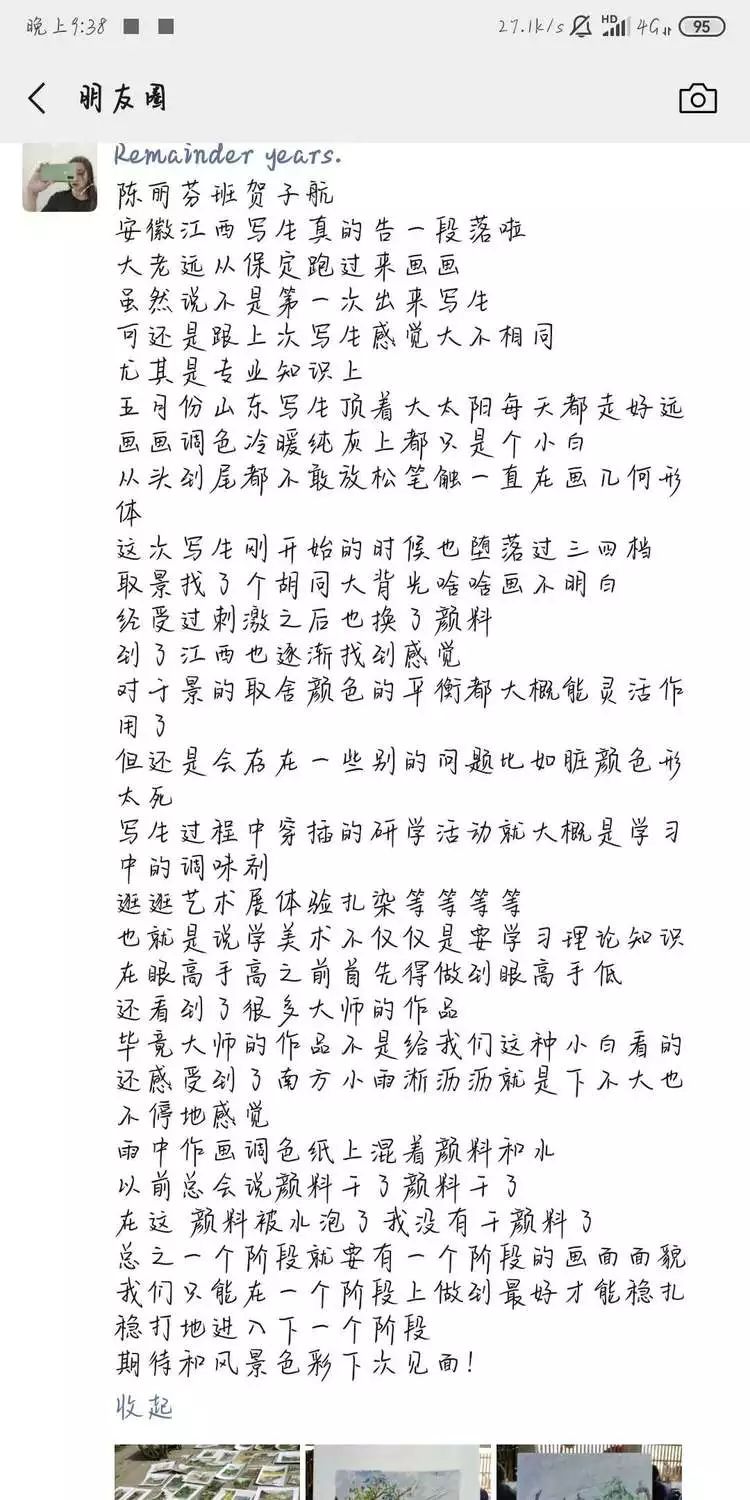 晚上9:38
27.1k/s HD 4G 95
朋友圈
Remainder years.
陈丽芬班贺子航
安徽江西写生真的告一段落啦
大老远从保定跑过来画画
虽然说不是第一次出来写生
可还是跟上次写生感觉大不相同
尤其是专业知识上
五月份山东写生顶着大太阳每天都走好远
画画调色冷暖纯灰上都只是个小白
从头到尾都不敢放松笔触一直在画几何形
体
这次写生刚开始的时候也堕落过三四档
取景找了个胡同大背光啥啥画不明白
经受过刺激之后也换了颜料
到了江西也逐渐找到感觉
对于景的取舍颜色的平衡都大概能灵活作
用了
但还是会存在一些别的问题比如脏颜色形
太死
写生过程中穿插的研学活动就大概是学习
中的调味剂
逛逛艺术展体验扎染等等等等
也就是说学美术不仅仅是要学习理论知识
在眼高手高之前首先得做到眼高手低
还看到了很多大师的作品
毕竟大师的作品不是给我们这种小白看的
还感受到了南方小雨淅沥沥就是下不大也
不停地感觉
雨中作画调色纸上混着颜料和水
以前总会说颜料干了颜料干了
在这 颜料被水泡了我没有干颜料了
总之一个阶段就要有一个阶段的画面面貌
我们只能在一个阶段上做到最好才能稳扎
稳打地进入下一个阶段
期待和风景色彩下次见面!
收起